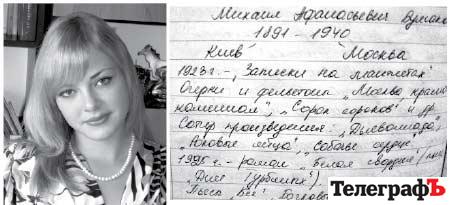 Михаил Афанасьевич Булгако
1891 - 1940
Киев Москва
1923 г. - „Записки на манжетах"
Очерки и фельетоны „Москва красно
каменная", „Сорок сороков" и др.
Сатир произведения: „Дьяволиада",
„Роковые яйца", „Собачье сердце"
1925 г. - роман „Белая гвардия" (
„Дни Турбиных").
Пьеса „Бег"
ТелеграфЪ